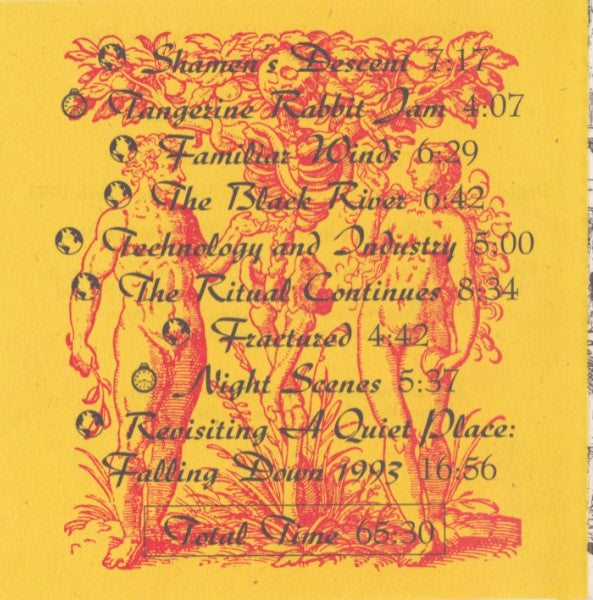 Shamen's Descent 7:17
Tangerine Rabbit Jam 4:07
Familiar Winds 6:29
The Black River 6:42
Technology and Industry 5:00
The Ritual Continues 8:34
Fractured 4:42
Night Scenes 5:37
Revisiting A Quiet Place:
Falling Down 1993 16:56
Total Time 65:30